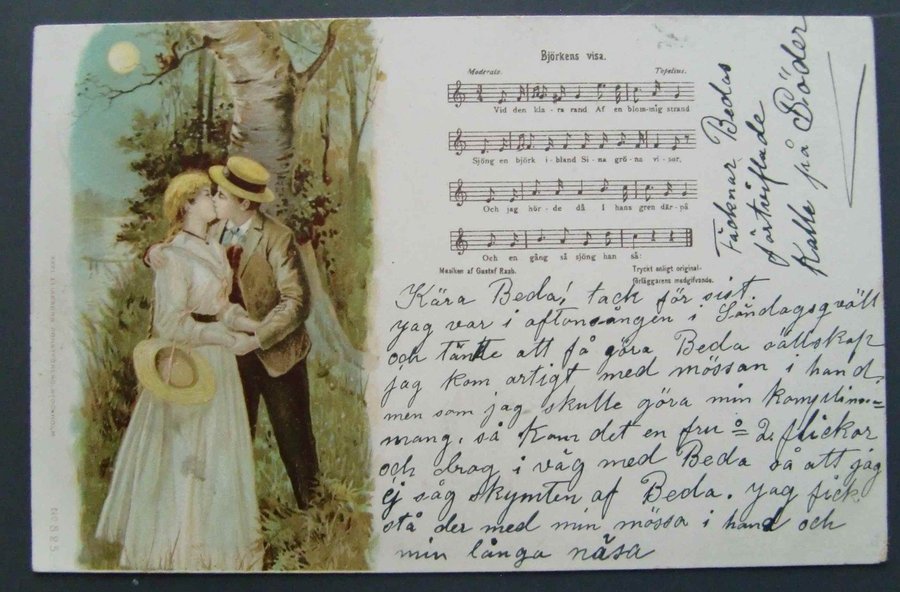 Björkens visa.
Moderato. Topelius.
Vid den kla - ra rand Af en blom-mig strand
Sjöng en björk i - bland Si - na grö - na vi - sor,
Och jag hör - de då I hans gren där - på
Och en gång så sjöng han så:
Musiken af Gustaf Raab. Tryckt enligt original-
förläggarens medgifvande.
Kära Beda! tack för sist.
jag var i aftonsången i Söndagsqväll
och tänkte att få göra Beda sällskap
jag kom artigt med mössan i hand,
men som jag skulle göra min komplime=
mang, så kom det en fru o 2 flickor
och drog i väg med Beda så att jag
ej såg skymten af Beda. jag fick
stå der med min mössa i hand och
min långa näsa
Tecknar Bedas
förtviflade
Kalle på Söder
N:825